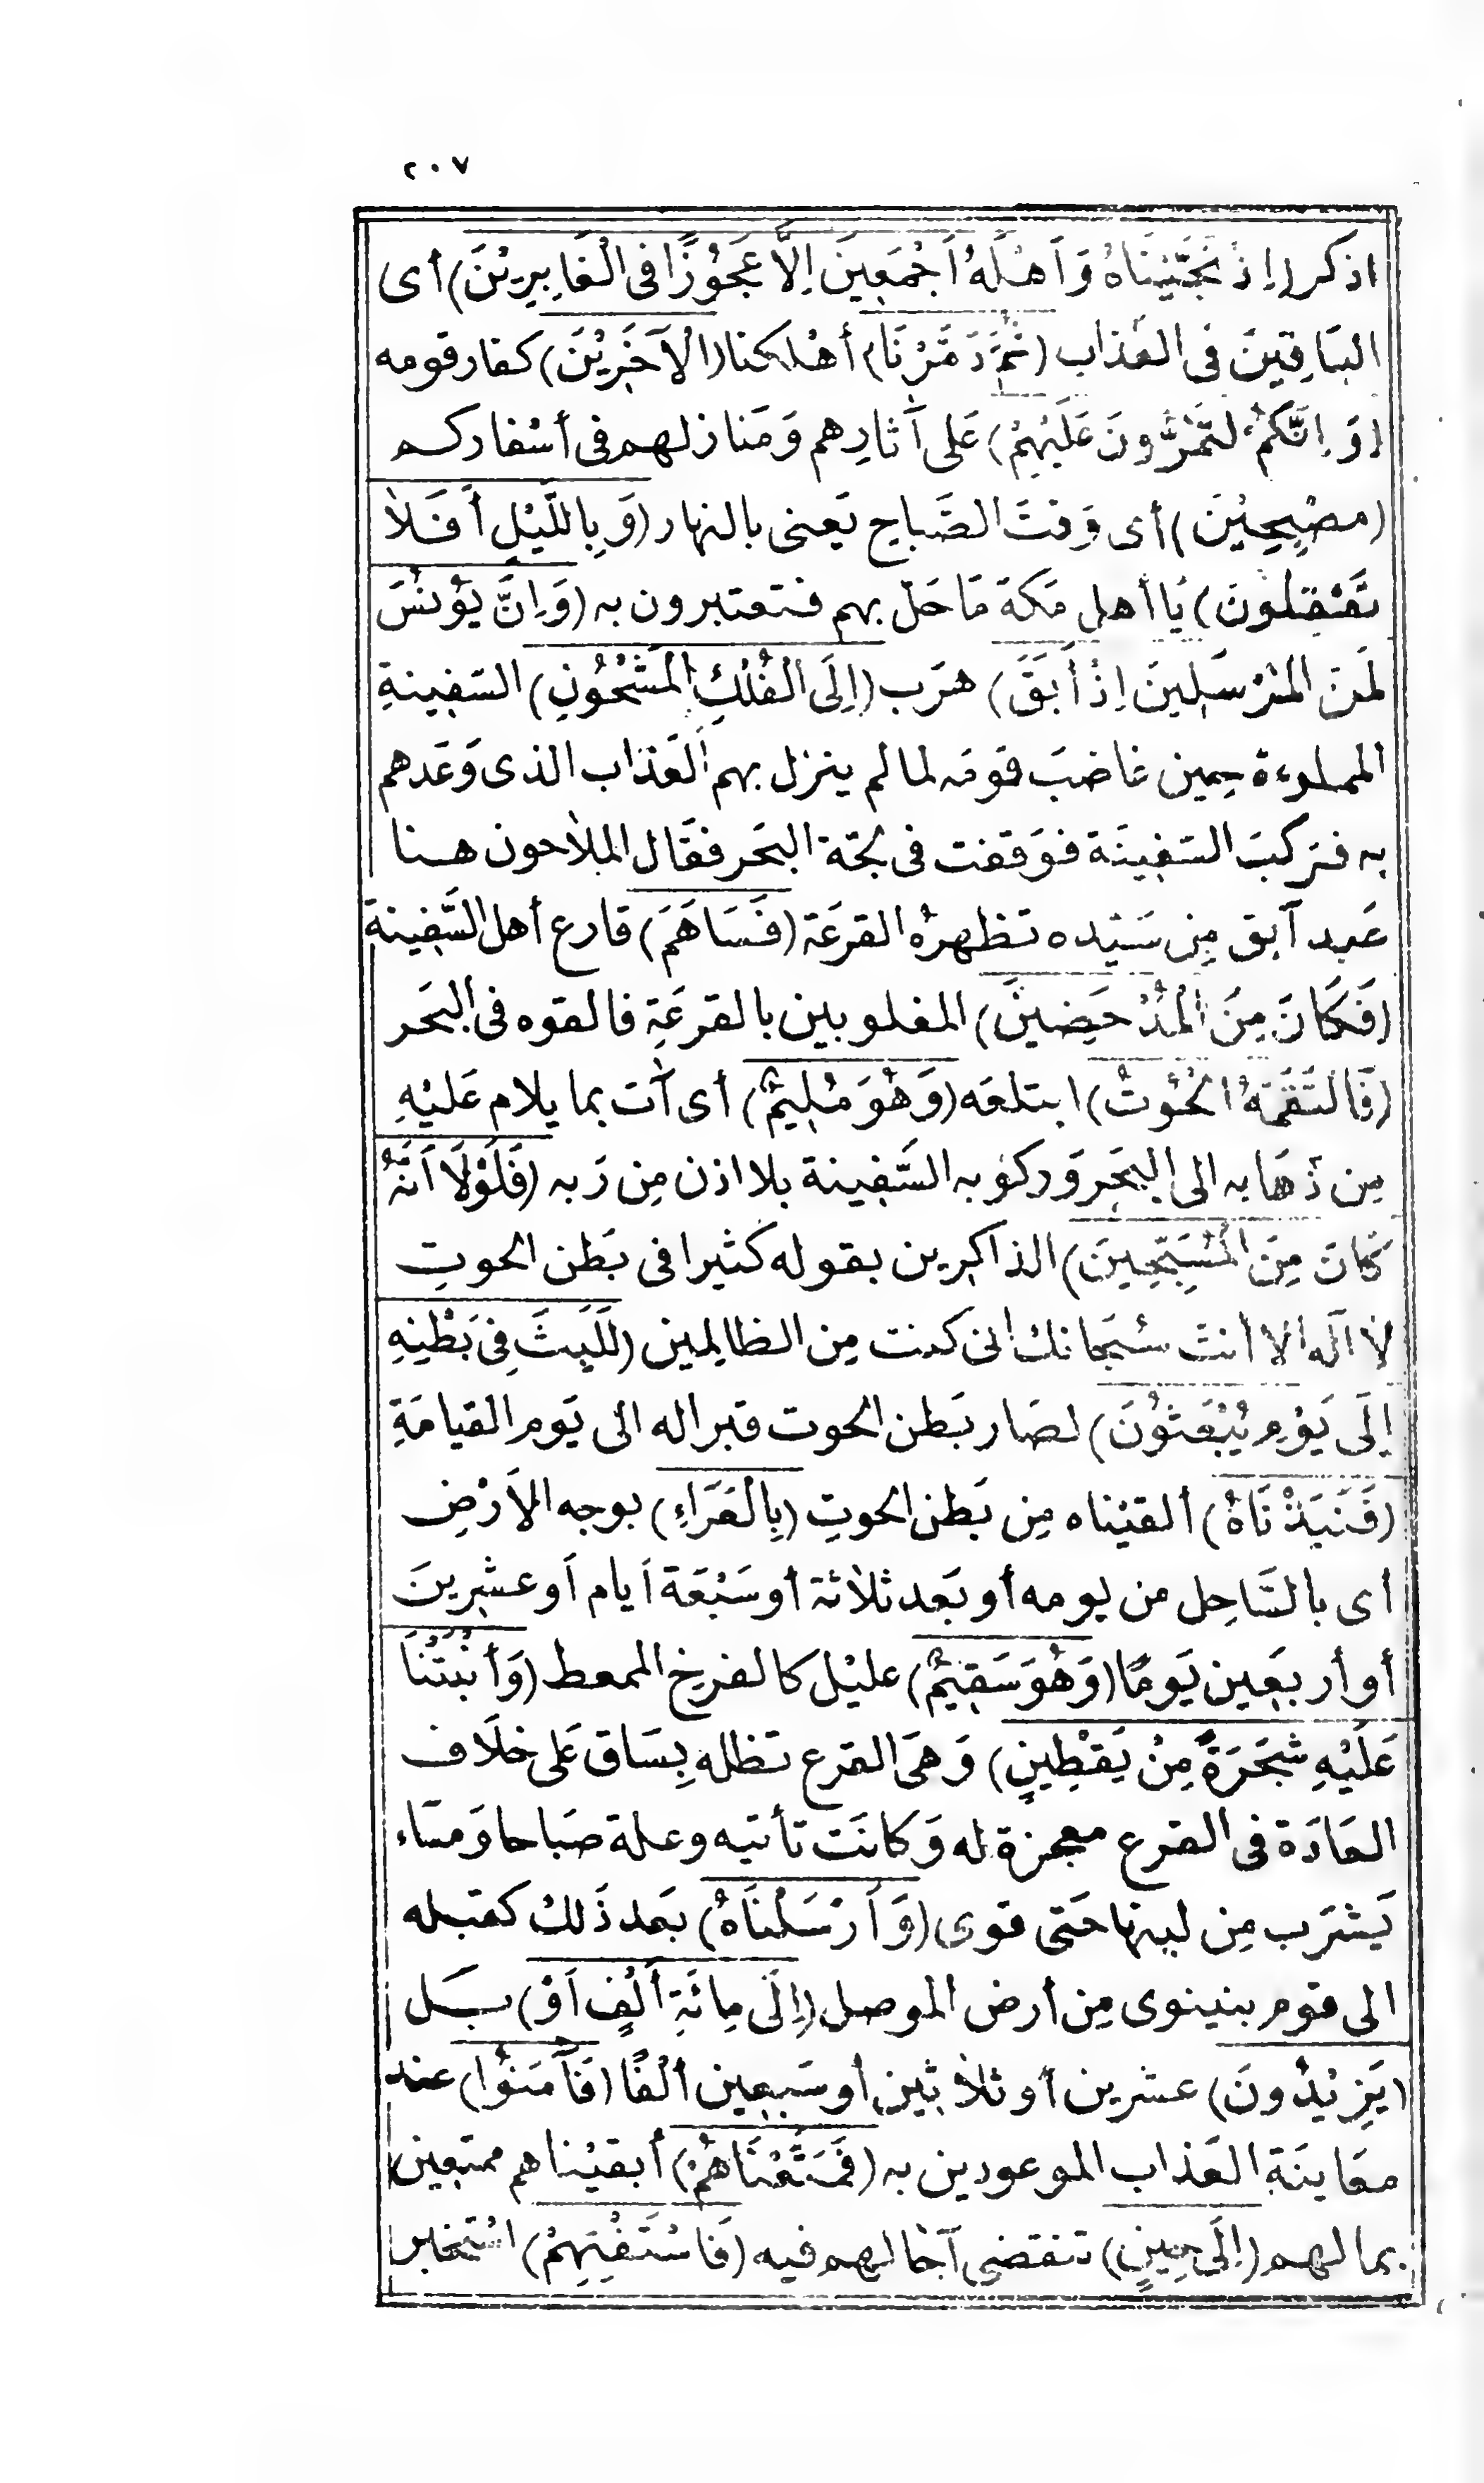 ٢٠٧
اذكر (اِذْ نَجَّيْنَاهُ وَاَهْلَهُ اَجْمَعِينَ اِلَّا عَجُوْزًا فِى الْغَابِرِيْنَ) أى
البَاقِينَ فى العَذاب (ثُمَّ دَمَّرْنَا) أهْلكنا (الْآخَرِيْنَ) كفار قومه
(وَاِنَّكُمْ لَتَمُرُّونَ عَلَيْهِمْ) عَلى آثارِهم وَمَنازلهم فى أسْفاركم
(مصْبِحِيْنَ) أى وَقتَ الصَّباحِ يَعنى بالنهار (وَبِاللَّيْلِ أَفَلَا
تَعْقِلُونَ) يَا أهل مَكةَ مَاحَلّ بهم فتعتبرون به (وَاِنَّ يُوْنُسَ
لَمِنَ الْمُرْسَلِينَ اِذْ أَبَقَ) هرَب (اِلَى الْفُلْكِ الْمَشْحُوْنِ) السَفينةِ
المملوءة حِين غاضبَ قومَه لما لم ينزل بهم العَذاب الذى وَعَدهم
به فرَكبَ السَفينَة فوَقفت فى لجّة البَحَر فقَال الملاحون هنا
عَبد آبق مِن سَيّده تظهرهُ القرعَة (فَسَاهَمَ) قارع أهل السَّفينة
(فَكَانَ مِنَ الْمُدْحَضِينَ) المغلوبين بالقرعَةِ فالقوه فى البَحَر
(فَالْتَقَمَهُ الْحُوْتُ) ابتلعَه (وَهُوَ مُلِيمٌ) أى آت بما يلام عَليْهِ
مِن ذَهَابه الى البَحَر وَركوْبه السَّفينة بلااذن مِن رَبه (فَلَوْلَا اَنَّهُ
كَانَ مِنَ الْمُسَبِّحِينَ) الذاكرين بقوله كثيرا فى بَطن الحوتِ
لا اله الا أنتَ سُبحَانك انى كنت مِن الظالِمين (لَلَبِثَ فِى بَطْنِهِ
اِلَى يَوْمِ يُبْعَثُوْنَ) لصَار بَطن الحوت قبرا له الى يَوم القيامَةِ
(فَنَبَذْنَاهُ) ألقيْناه مِن بَطن الحوتِ (بِالْعَرَاءِ) بوجه الأَرْضِ
أى بالسَّاحِل من يومه أو بَعد ثلاثة أو سَبْعَة أيام أو عشرينَ
أو أربعَين يَومًا (وَهُوَ سَقِيْمٌ) عليْل كالفرخ الممعط (وَأَنْبَتْنَا
عَلَيْهِ شَجَرَةً مِنْ يَقْطِينٍ) وَهىَ القرع تظله بِسَاق عَلى خلَاف
العَادَة فى القرع معجزة له وَكانَت تأتيه وعلة صَباحا وَمسَاء
يَشرَب مِن لبنها حَتى قوى (وَاَرْسَلْنَاهُ) بَعد ذَلك كقبله
الى قوم بنينوى مِن أرض الموصل (اِلَى مِائَةِ أَلْفٍ اَوْ) بَل
(يَزِيْدُونَ) عشرين أو ثلاثين أو سَبعين ألْفًا (فَآمَنُوْا) عند
معَاينَةِ العَذاب الموعودين به (فَمَتَّعْنَاهُمْ) أبقيْناهم ممتعين
بمالهم (اِلَى حِينٍ) تنقضى آجَالهم فيه (فَاسْتَفْتِهِمْ) اسْتخبر